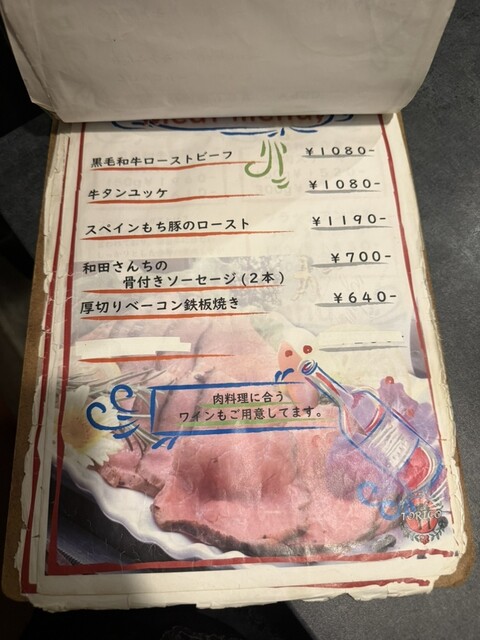 Meat menu
黒毛和牛ローストビーフ ¥1080-
牛タンユッケ ¥1080-
スペインもち豚のロースト ¥1190-
和田さんちの
骨付きソーセージ(2本) ¥700-
厚切りベーコン鉄板焼き ¥640-
肉料理に合う
ワインもご用意してます。
TORICO